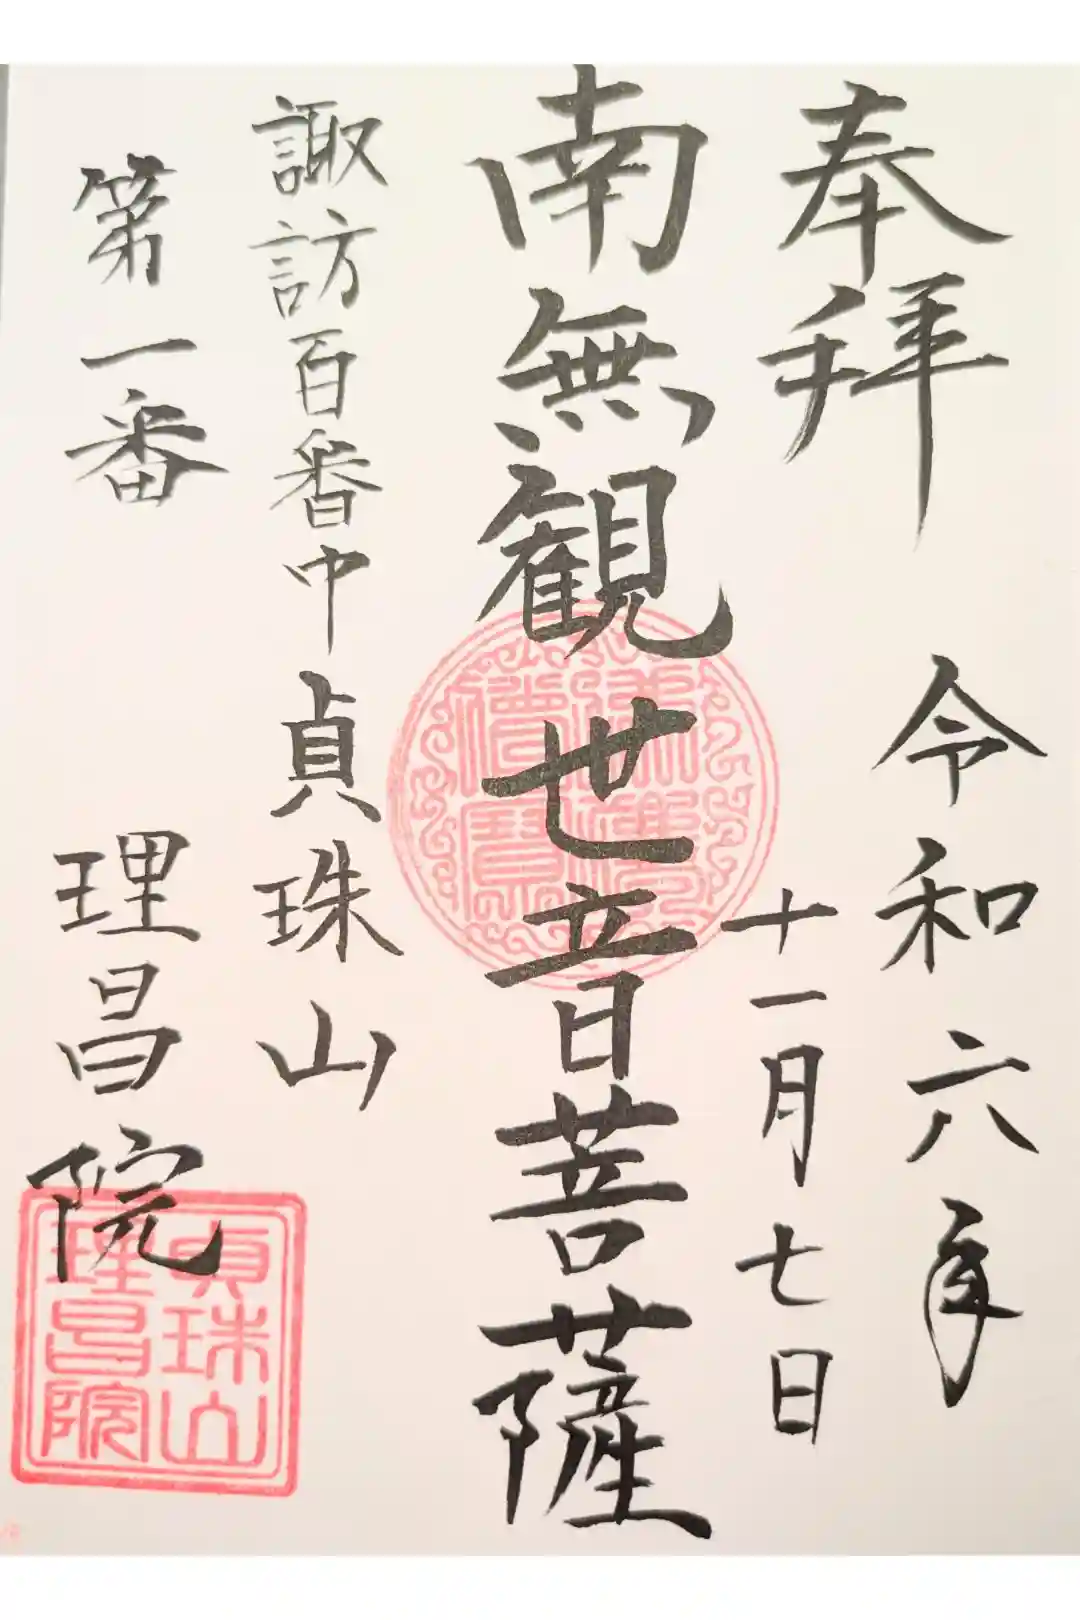 奉拝
令和六年
十一月七日
南無観世音菩薩
諏訪百番中
第一番
貞珠山
理昌院
貞珠山
理昌院